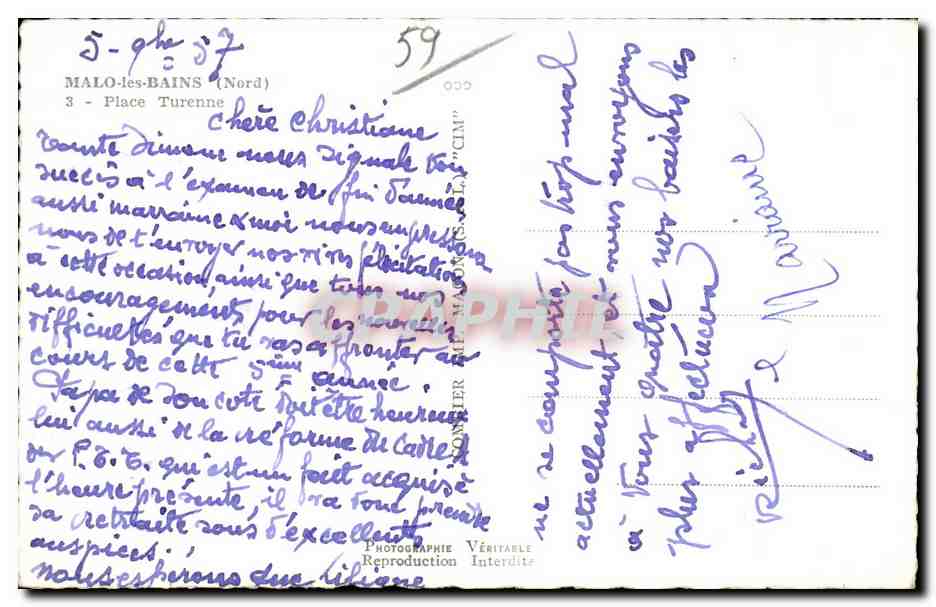 5-9bre 57
59
MALO-les-BAINS (Nord)
3 - Place Turenne
Chère Christiane
Tante Simone nous signale ton
succès à l'examen de fin d'année
aussi marraine & moi nous empressons
nous de t'envoyer nos vives félicitations
à cette occasion, ainsi que tous nos
encouragements pour les nouvelles
difficultés que tu vas affronter au
cours de cette 5ème année.
Papa de son coté doit être heureux
lui aussi de la réforme du cadre A
des P.T.T. qui est un fait acquis à
l'heure présente, il va donc prendre
sa retraite sous d'excellents
auspices.
nous espérons que Liliane
ne se comporte pas trop mal
actuellement, et nous envoyons
à vous quatre nos baisers les
plus affectueux
Marraine
COMBIER IMP. MACON (S.-&-L.) "CIM"
PHOTOGRAPHIE VÉRITABLE
Reproduction Interdite
CARAPHIL